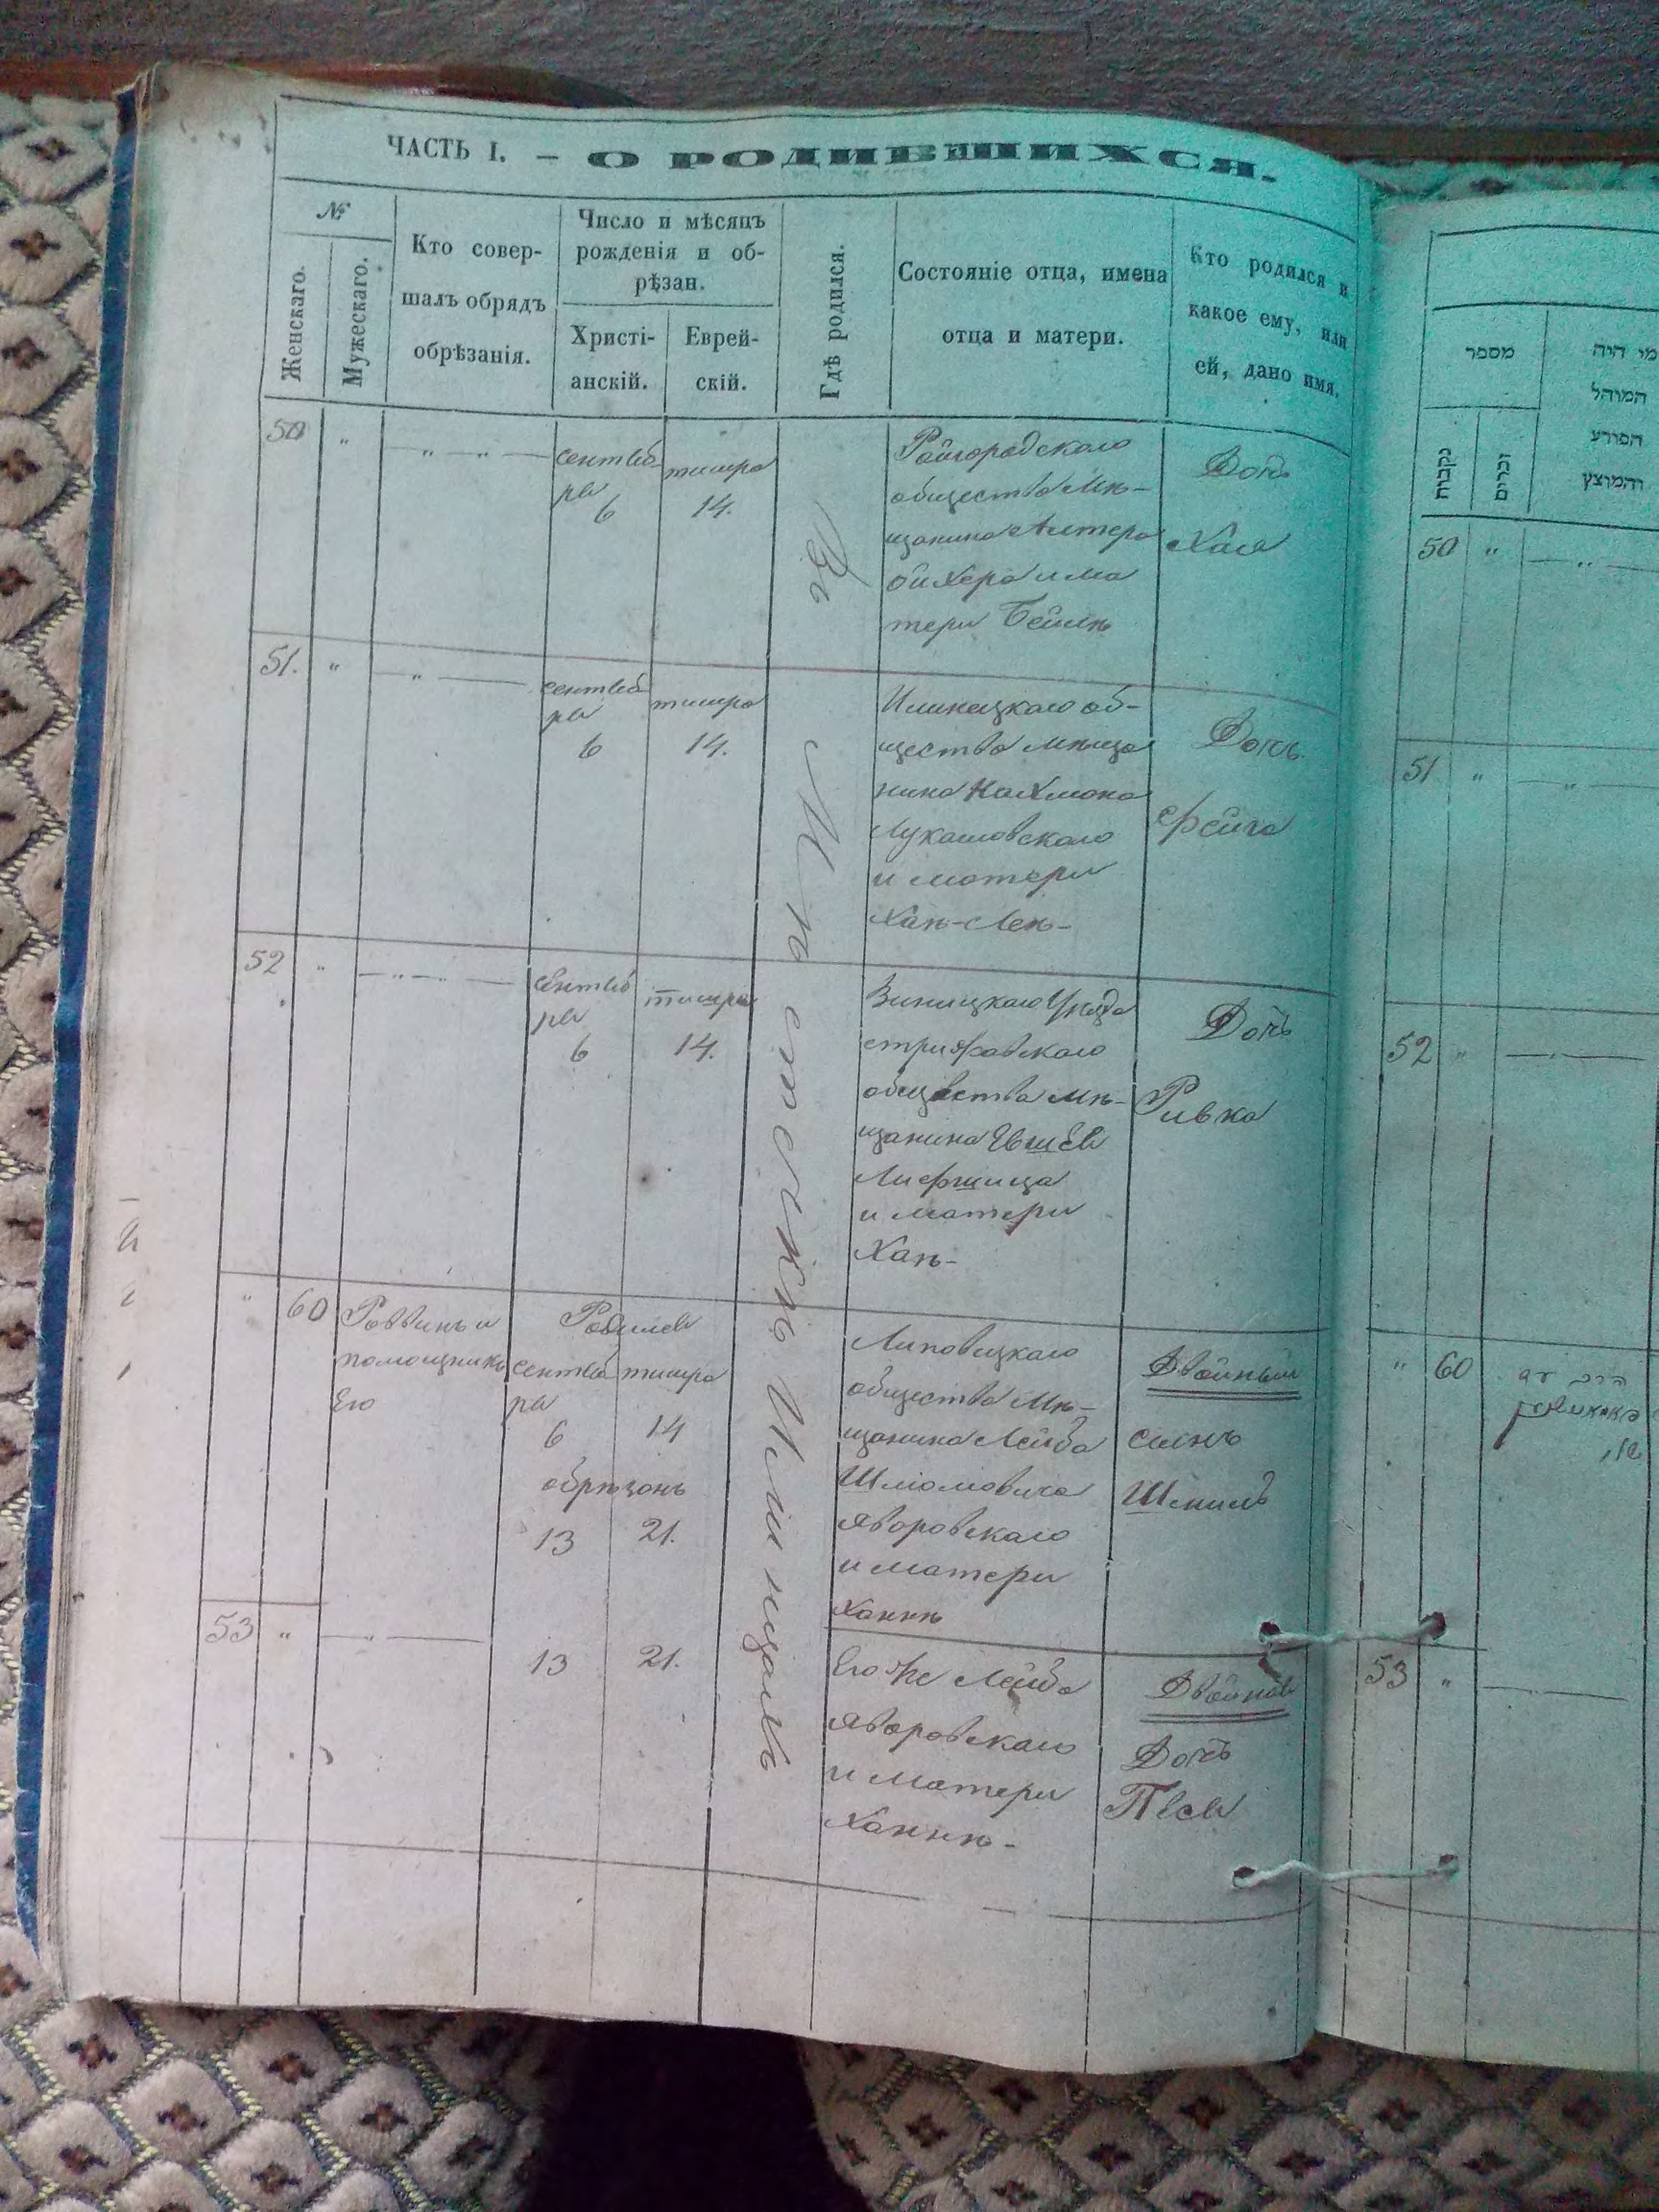 ЧАСТЬ I. – О РОДИВШИХСЯ.
№
Женскаго.
Мужескаго.
Кто совер-
шалъ обрядъ
обрѣзанія.
Число и мѣсяцъ
рожденія и об-
рѣзан.
Христі-
анскій.
Еврей-
скій.
Гдѣ родился.
Состояніе отца, имена
отца и матери.
Кто родился и
какое ему, или
ей, дано имя.
Въ Мѣстечкѣ Илинцахъ
50 " " " сентяб
ря
6
тишра
14.
Райгородскаго
общества Мѣ-
щанина Алтера
ойхера и ма
тери Бейлѣ
Дочь
Хая
51. " " сентяб
ря
6
тишра
14.
Илинецкаго об-
щества мѣща
нина Нахмана
Лукашовскаго
и матери
Хаѣ-Леѣ-
Дочь
Фейга
52 " " сентяб
ря
6
тишри
14.
Виницкаго Уѣзда
стрижавскаго
общества мѣ-
щанина
Лифшица
и матери
Хаѣ-
Дочь
Ривка
" 60 Раввинъ и
помощникъ
Его
Родился
сентяб
ря
6
тишра
14
обрѣзанъ
13 21.
Липовецкаго
общества Мѣ-
щанина Лейба
Шліомовича
Яворовскаго
и матери
Ханнѣ
Двойный
сынъ
Шмилъ
53 " " 13 21.
Его же Лейба
Яворовскаго
и матери
Ханнѣ-
Двойная
Дочь
Песя
מספר
נקבות
זכרים
מי היה
המוהל
הפורע
והמוצץ
50 "
51 "
52 "
" 60
53 "